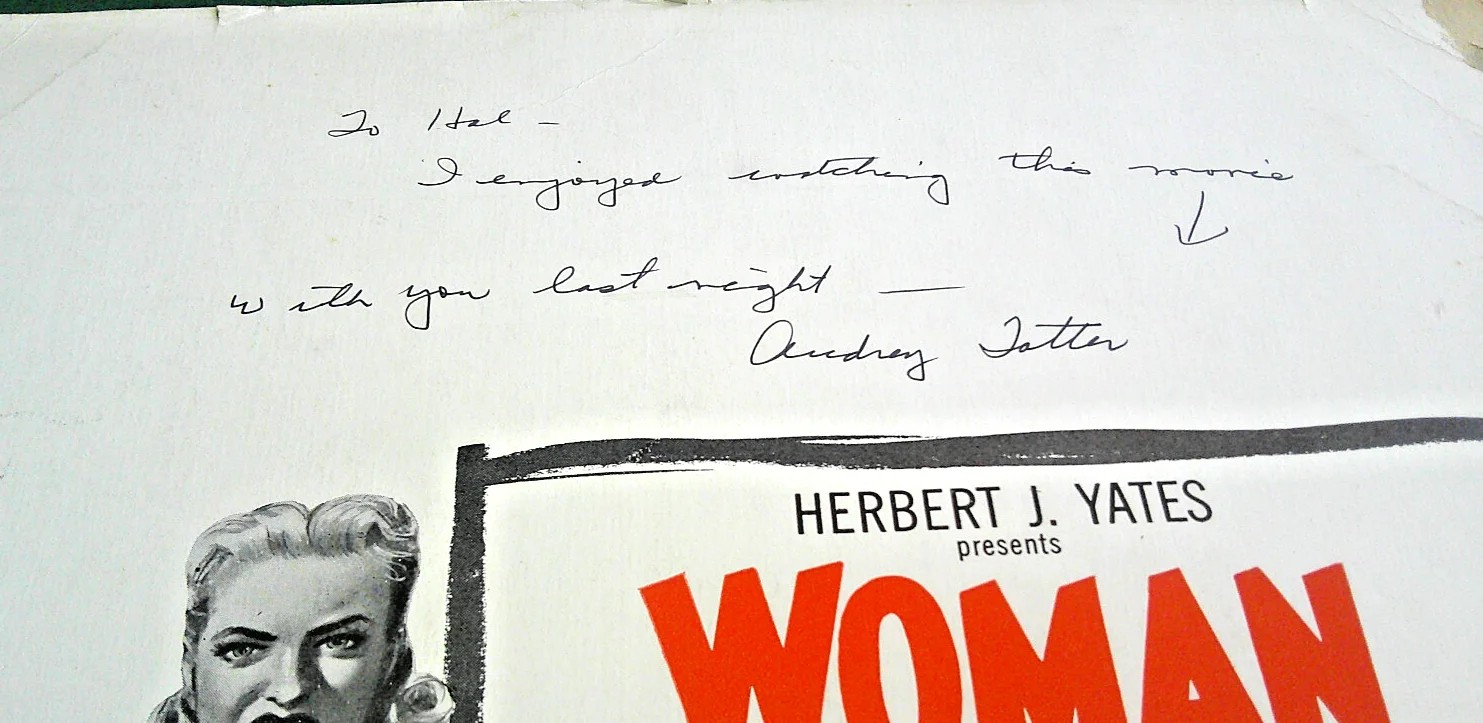 To Hal -
I enjoyed watching this movie
↓
with you last night —
Audrey Totter
HERBERT J. YATES
presents
WOMAN